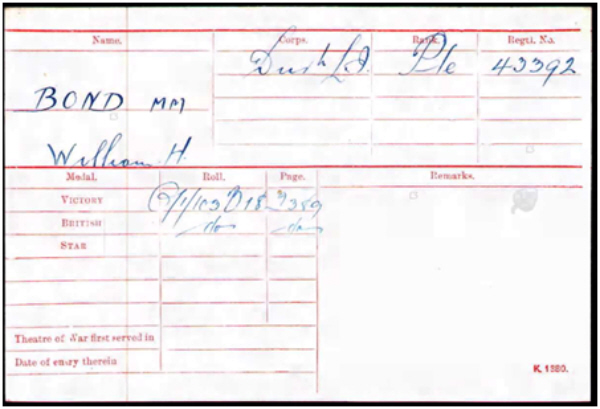 Name. Corps. Rank. Regtl. No.
Durh L.I. Pte 43392
BOND MM
William H.
Medal. Roll. Page. Remarks.
VICTORY 7389
BRITISH do do
STAR
Theatre of War first served in
Date of entry therein
K. 1380.